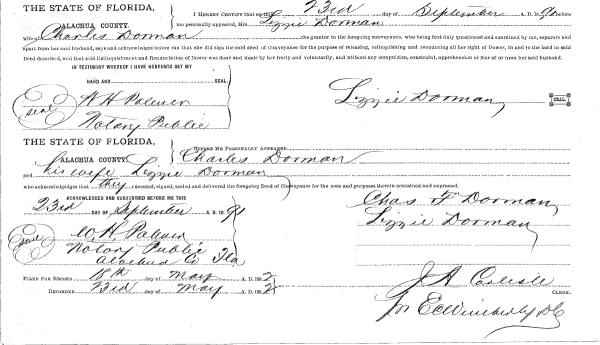 THE STATE OF FLORIDA,
ALACHUA COUNTY.
I HEREBY CERTIFY that on this 23rd day of September A. D. 1891 before
me personally appeared, Mrs Lizzie Dorman
wife of Charles Dorman the grantor in the foregoing conveyance, who being first duly questioned and examined by me, separate and
apart from her said husband, says and acknowledges before me that she did sign the said deed of Conveyance for the purpose of releasing, relinquishing and renouncing all her right of Dower, in and to the land in said
Deed described, and that said Relinquishment and Renunciation of Dower was dont and made by her freely and voluntarily, and without any compulsion, constraint, apprehension or fear of or from her said husband.
IN TESTIMONY WHEREOF I HAVE HEREUNTO SET MY
HAND AND SEAL.
Seal W H Palmer
Notary Public
Lizzie Dorman SEAL.
THE STATE OF FLORIDA,
ALACHUA COUNTY
BEFORE ME PERSONALLY APPEARED Charles Dorman
and his wife Lizzie Dorman
who acknowledges that they executed, signed, sealed and delivered the foregoing Deed of Conveyance for the uses and purposes therein contained and expressed.
ACKNOWLEDGED AND SUBSCRIBED BEFORE ME THIS
23rd DAY OF September A. D. 1891
Chas F Dorman
Lizzie Dorman
Seal W. H. Palmer
Notary Public
Alachua Co Fla
FILED FOR RECORD 18th day of May A. D. 1892
RECORDED 23rd day of May A. D. 1892
J A Carlisle
CLERK.
Per E C Wimberly D C